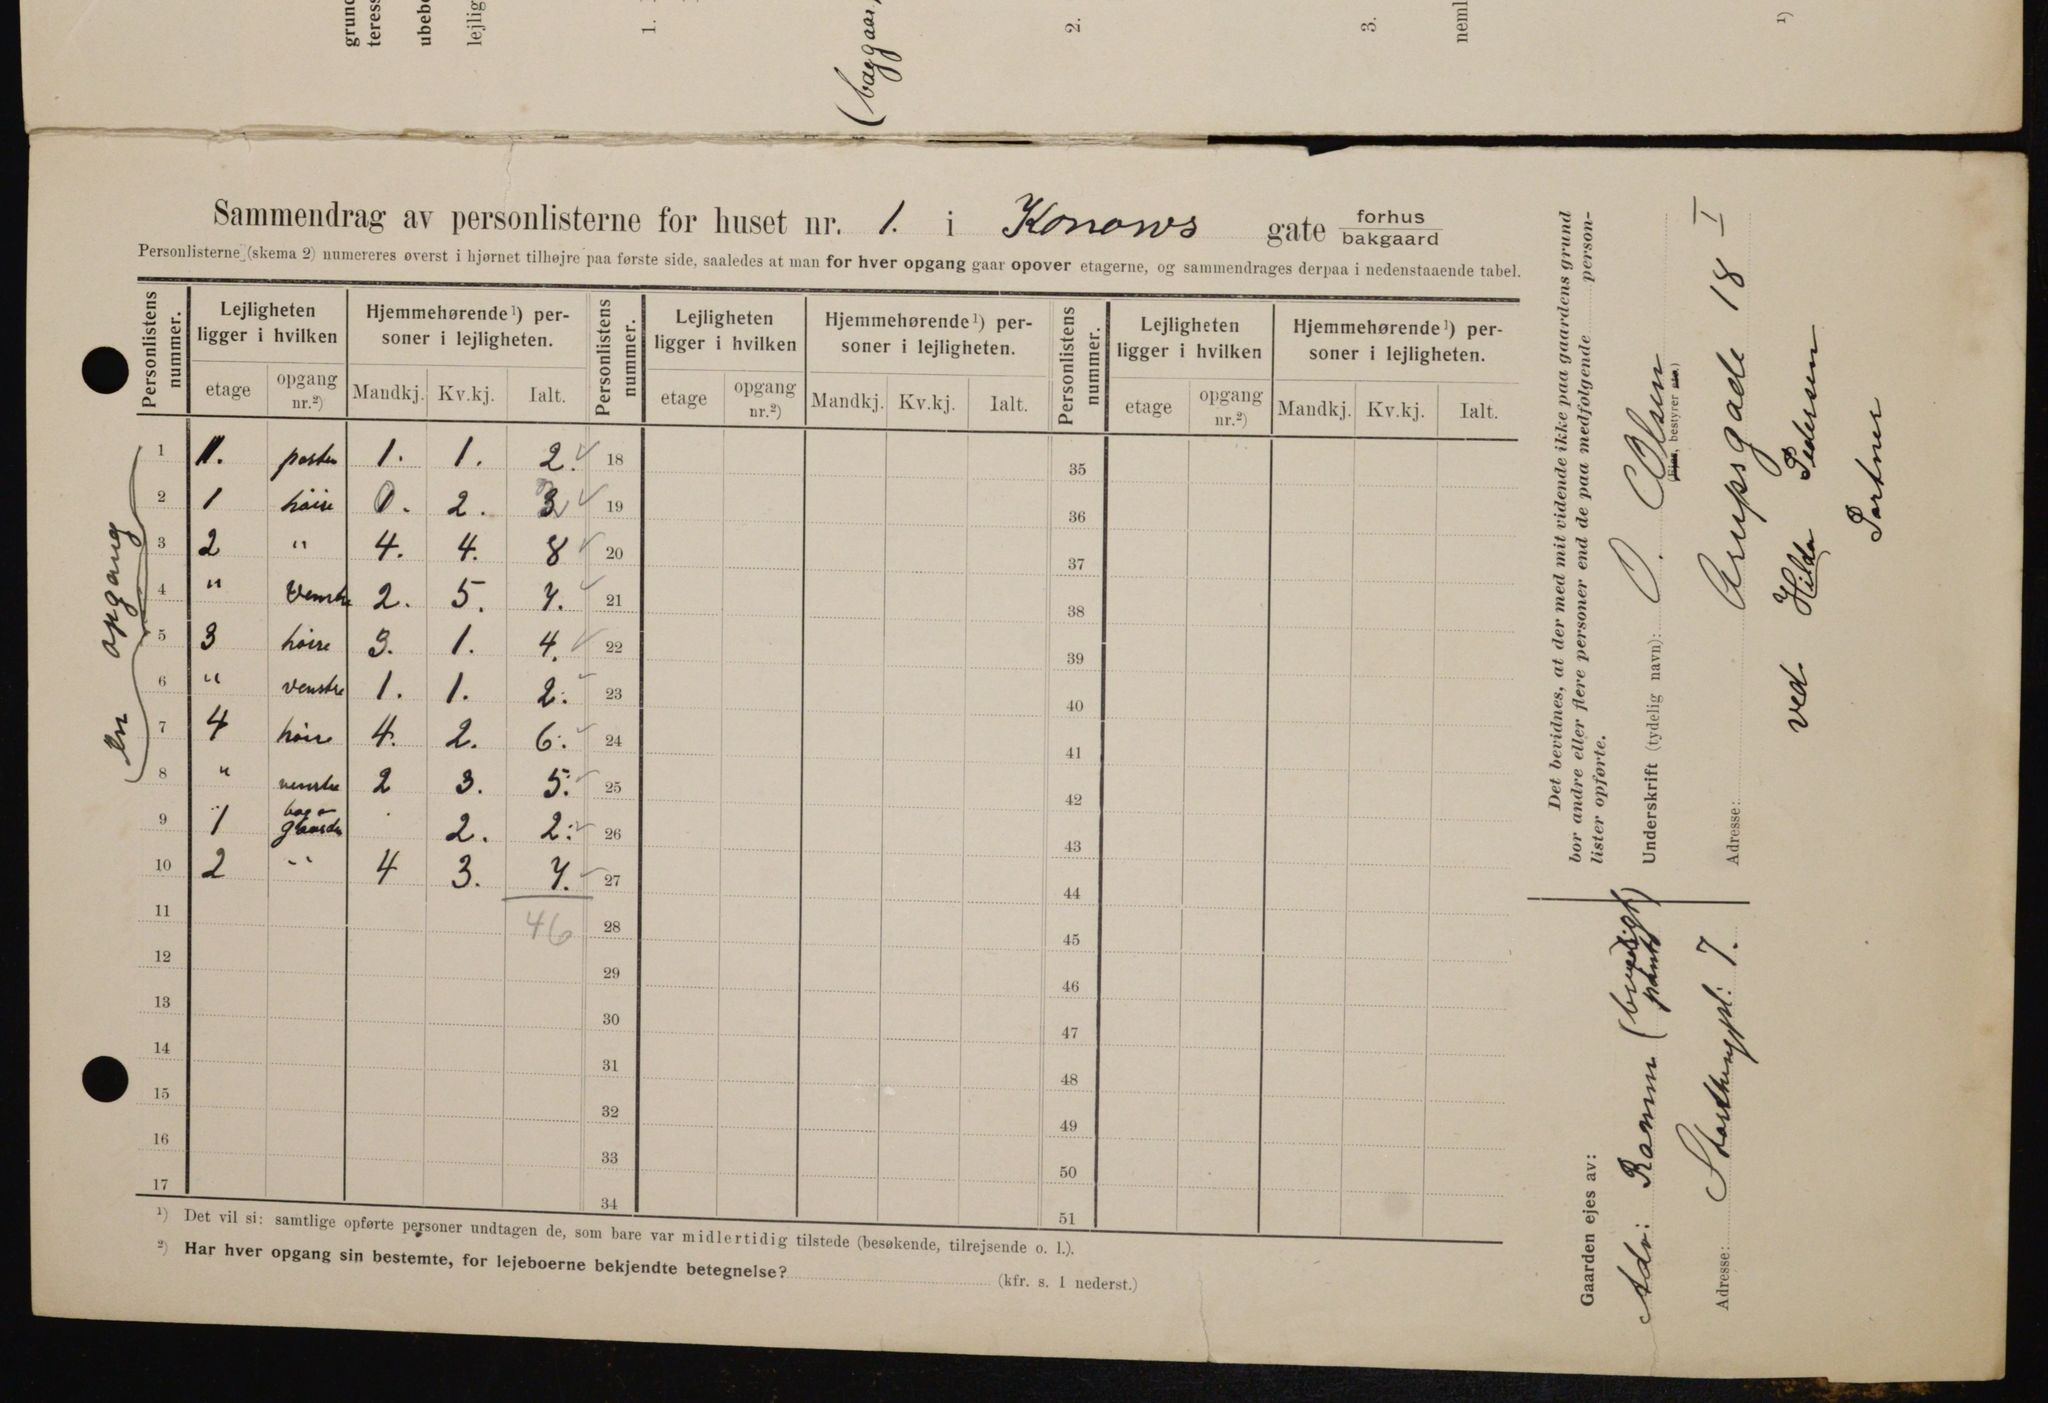 grund
teress
ubebo
lejlig
1.
(baggaar
2.
3.
neml
1)
Sammendrag av personlisterne for huset nr. 1. i Konows gate forhus
bakgaard
Personlisterne (skema 2) numereres øverst i hjørnet tilhøjre paa første side, saaledes at man for hver opgang gaar opover etagerne, og sammendrages derpaa i nedenstaaende tabel.
Personlistens nummer. Lejligheten ligger i hvilken Hjemmehørende¹) personer i lejligheten. Personlistens nummer. Lejligheten ligger i hvilken Hjemmehørende¹) personer i lejligheten. Personlistens nummer. Lejligheten ligger i hvilken Hjemmehørende¹) personer i lejligheten.
etage opgang nr.²) Mandkj. Kv.kj. Ialt. etage opgang nr.²) Mandkj. Kv.kj. Ialt. etage opgang nr.²) Mandkj. Kv.kj. Ialt.
en opgang
1 1. 1. 1. 2. 18 35
2 1 høire 0. 2. 19 36
3 2 " 4. 4. 8 20 37
4 " Venstre 2. 5. 7. 21 38
5 3 høire 3. 1. 4. 22 39
6 " venstre 1. 1. 2. 23 40
7 4 høire 4. 2. 6. 24 41
8 " venstre 2 3. 5. 25 42
9 1 bag-gaarden 2. 2. 26 43
10 2 " 4 3. 7. 27 44
11 46 28 45
12 29 46
13 30 47
14 31 48
15 32 49
16 33 50
17 34 51
¹) Det vil si: samtlige opførte personer undtagen de, som bare var midlertidig tilstede (besøkende, tilrejsende o. l.).
²) Har hver opgang sin bestemte, for lejeboerne bekjendte betegnelse? (kfr. s. 1 nederst.)
Det bevidnes, at der med mit vidende ikke paa gaardens grund
bor andre eller flere personer end de paa medfølgende personlister opførte.
Underskrift (tydelig navn): O. Olsen
Ejer, bestyrer etc.)
Adresse: Arupsgade 18 I
ved Hilda Pedersen
Portner
Gaarden ejes av:
Adv: Ramm
Adresse: Stortingspl: 7.